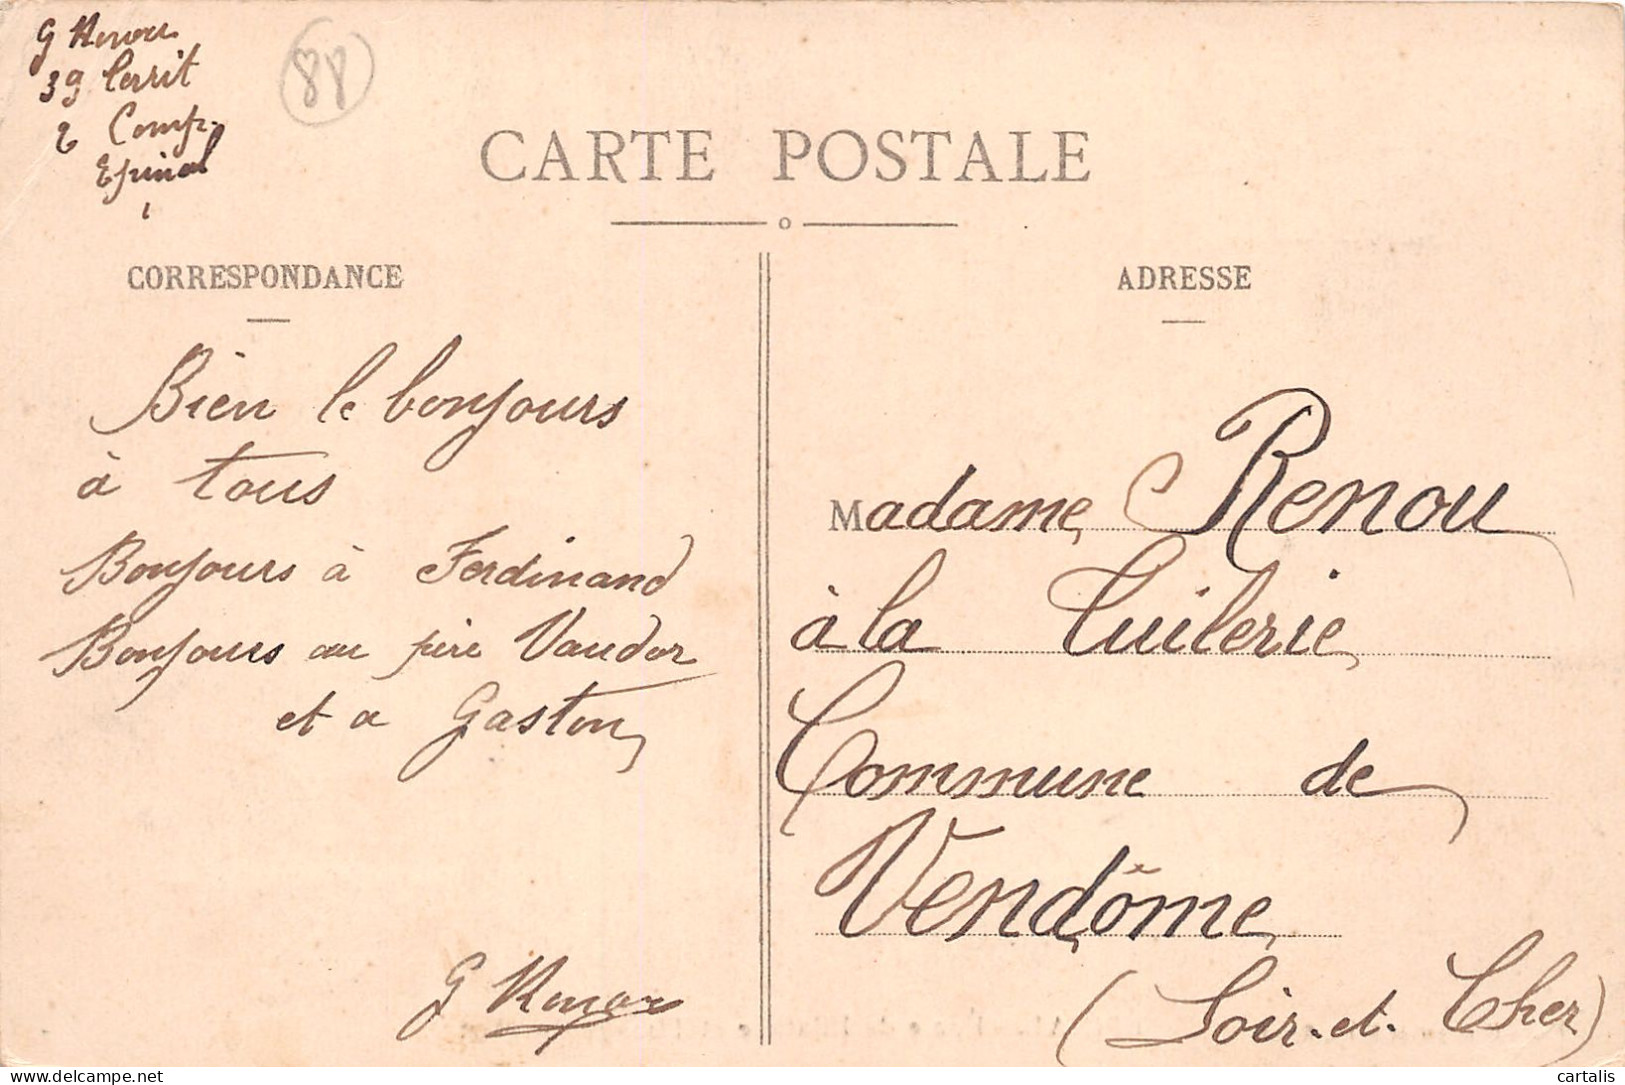 G Renou
39 Territ
2 Comp.
Epinal
88
CARTE POSTALE
CORRESPONDANCE
Bien le bonjours
à tous
Bonjours à Ferdinand
Bonjours au père Vandor
et a Gaston
G Renou
ADRESSE
Madame Renou
à la Tuilerie
Commune de
Vendôme
(Loir-et-Cher)
cartalis